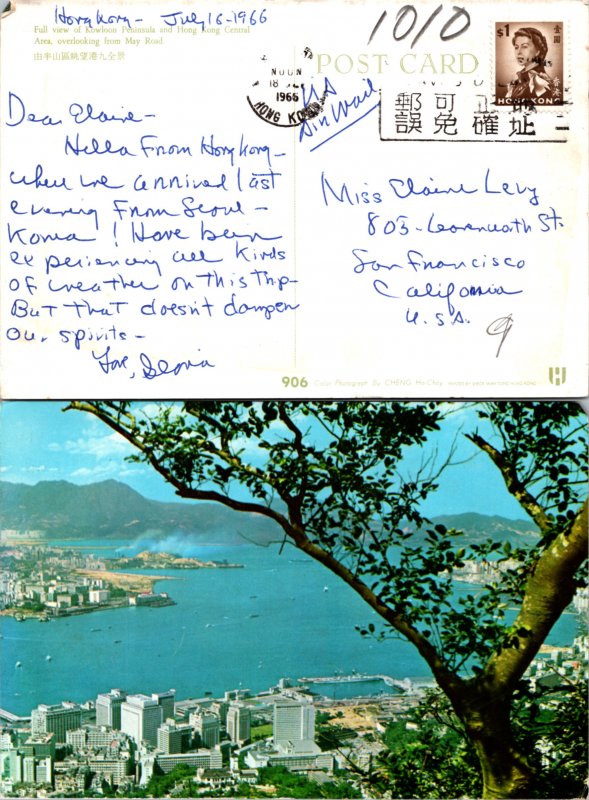 Hong Kong - July 16-1966
Full view of Kowloon Peninsula and Hong Kong Central
Area, overlooking from May Road
由半山區眺望港九全景
1010
POST CARD
$1
壹圓
HONG KONG
NOON
18 JL
1966
HONG KONG
郵可正
誤免確址
US
Air Mail
Dear Elaine-
Hello From Hong Kong-
where we arrived last
evening From Seoul-
Korea! Have been
experiencing all kinds
of weather on this trip-
But that doesn't dampen
our spirits-
Love, Gloria
Miss Elaine Levy
803- Leavenworth St.
San Francisco
California
U.S.A.
906
Color Photograph By CHENG Ho-Choy